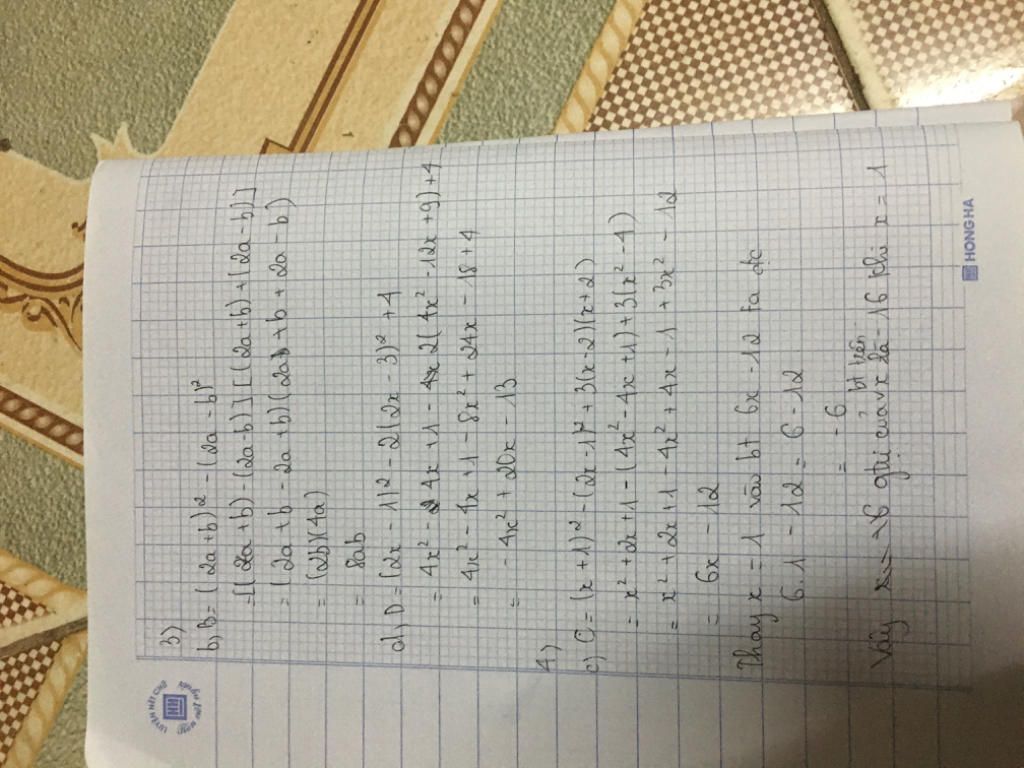 3)
b, B = (2a+b)² - (2a-b)²
= [(2a+b) - (2a-b)] [(2a+b) + (2a-b)]
= (2a+b - 2a+b) (2a+b + 2a-b)
= (2b)(4a)
= 8ab
d, D = (2x - 1)² - 2(2x - 3)² + 4
= 4x² - 4x + 1 - 2(4x² - 12x + 9) + 4
= 4x² - 4x + 1 - 8x² + 24x - 18 + 4
= - 4x² + 20x - 13
4)
c) C = (x + 1)² - (2x - 1)² + 3(x - 2)(x + 2)
= x² + 2x + 1 - (4x² - 4x + 1) + 3(x² - 4)
= x² + 2x + 1 - 4x² + 4x - 1 + 3x² - 12
= 6x - 12
Thay x = 1 vào bt 6x - 12 ta đc
6.1 - 12 = 6 - 12
= - 6
Vậy gtrị của bt trên là - 6 khi x = 1
LUYỆN NÉT CHỮ
HH
HONG HA